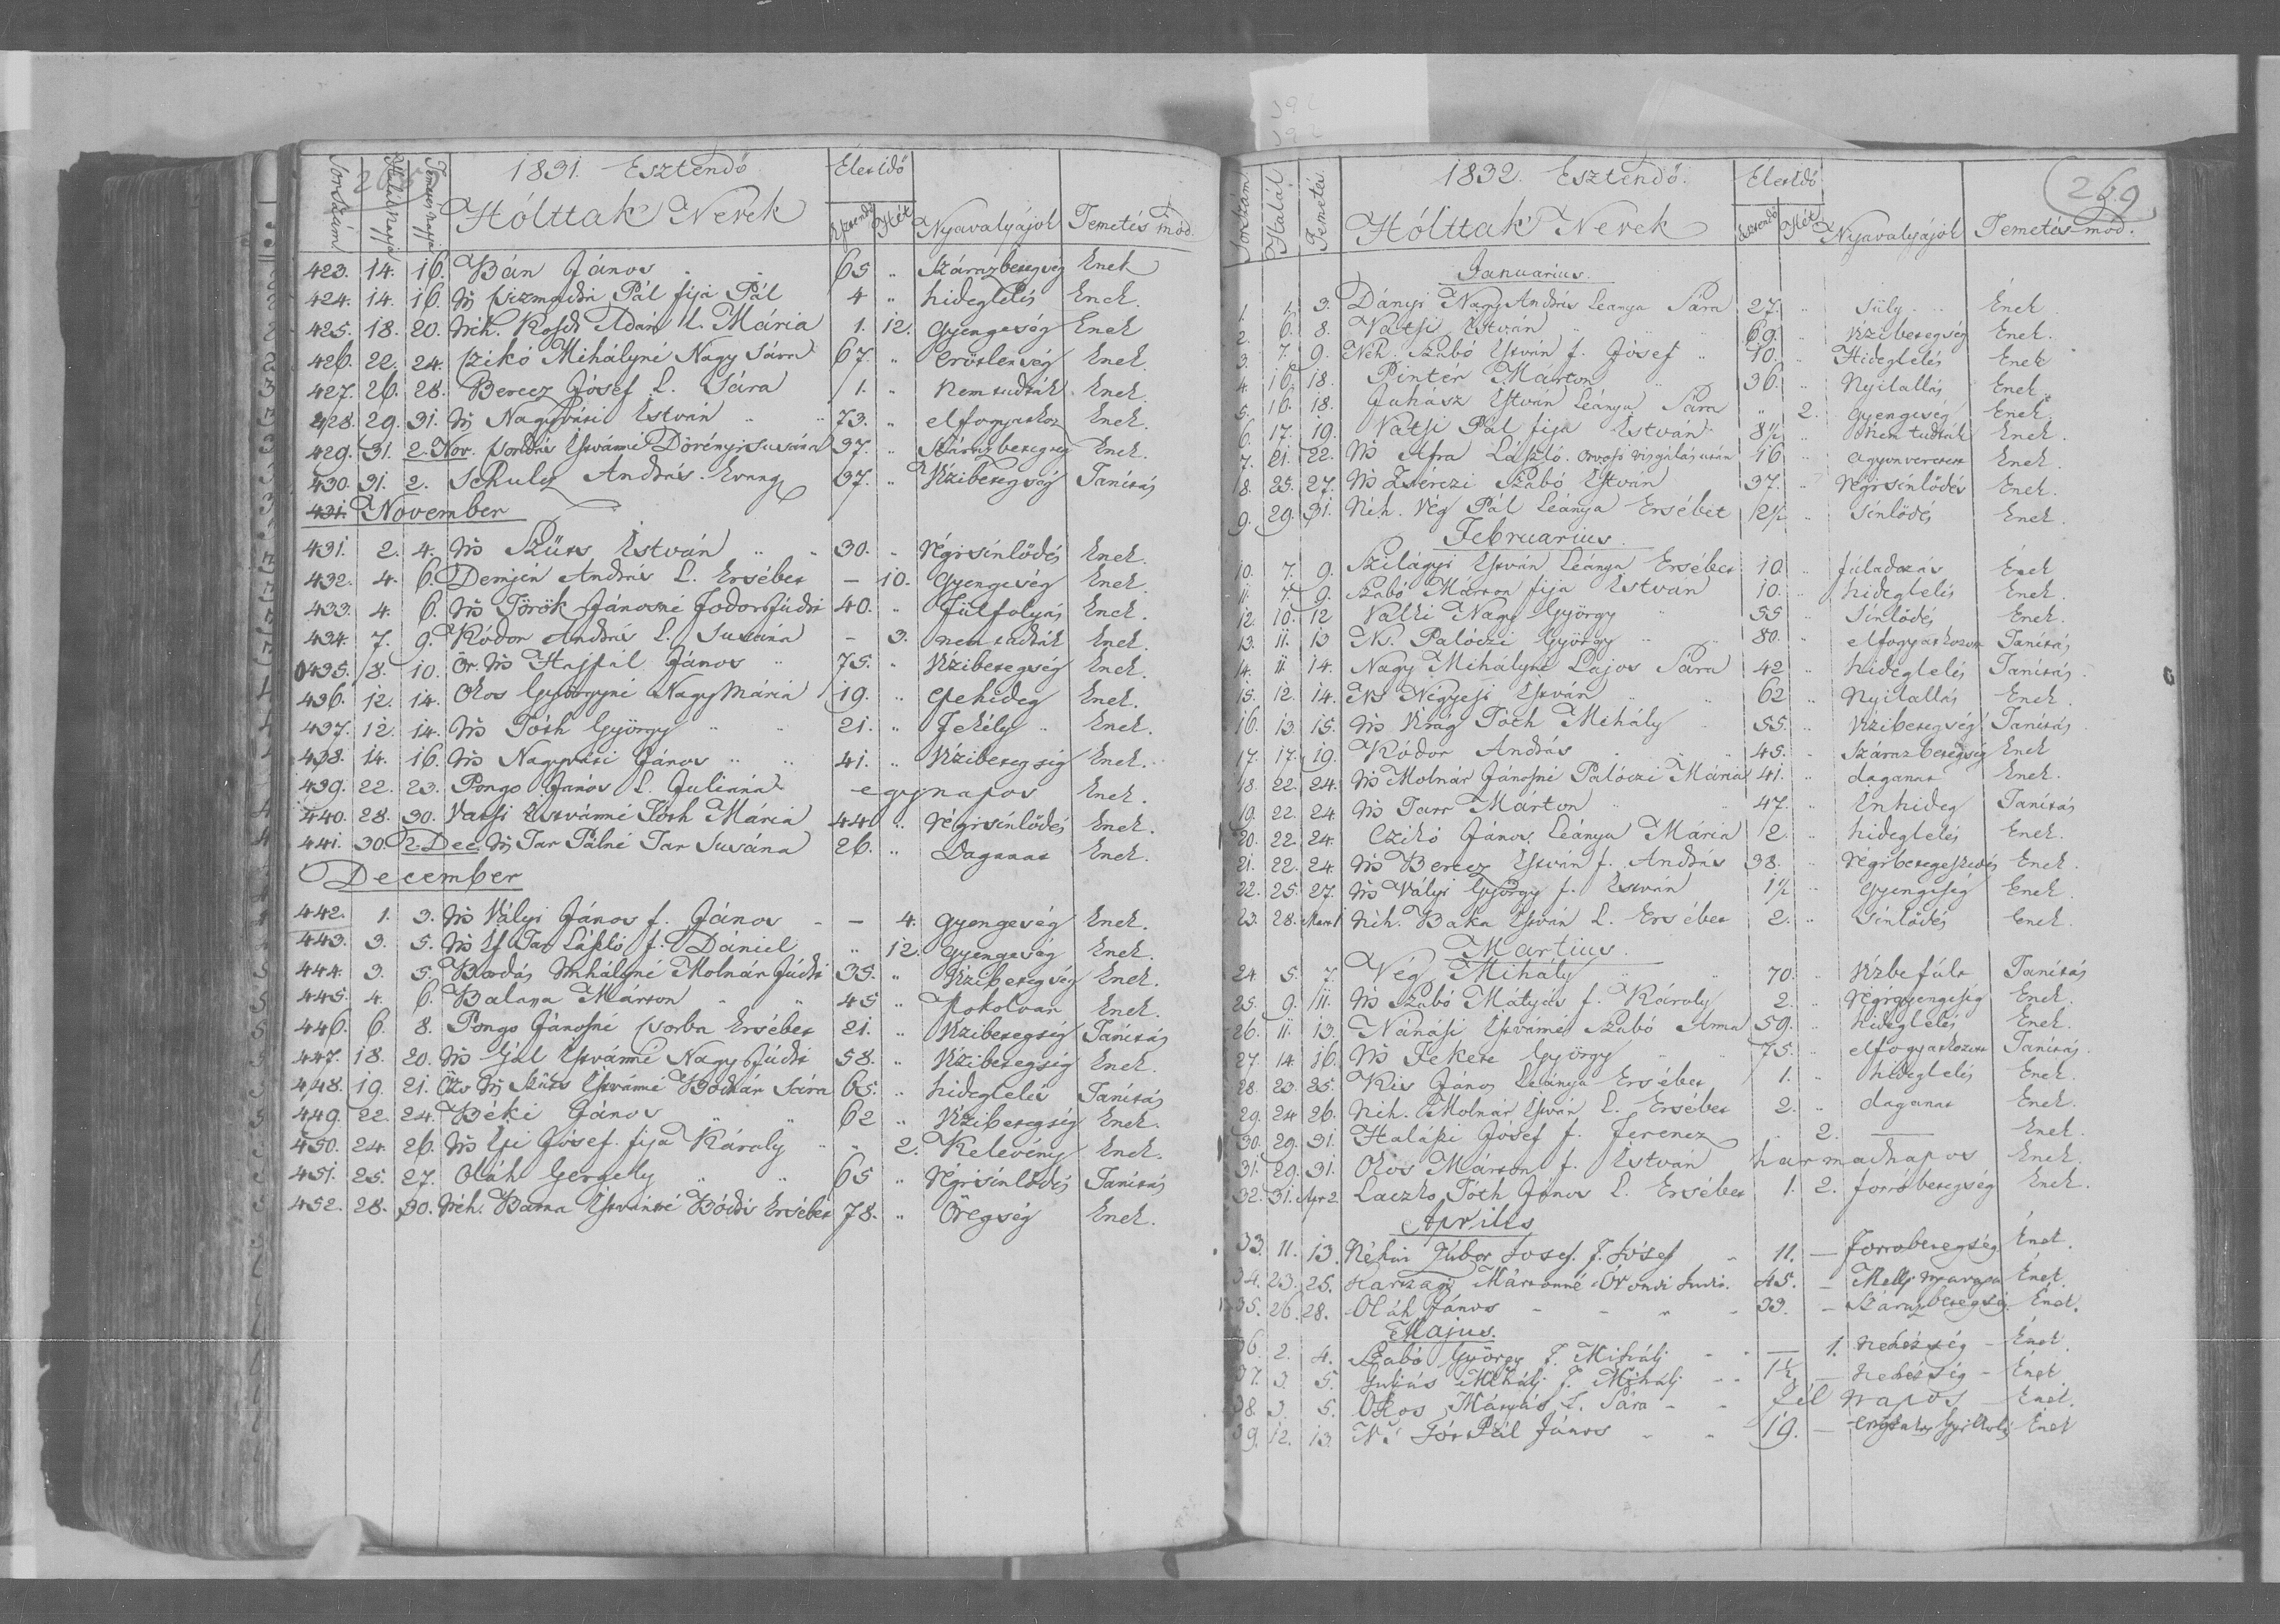 1831. Esztendő
Élet idő
Sorszám Halál napja Temetés napja Hólttak Nevek Esztendő Hét Nyavalyájok Temetés mód.
423. 14. 16. Bán János 65 " Szárazbetegség Enek
424. 14. 16. Ns Csizmadia Pál fija Pál 4 " hideglelés Enek.
425. 18. 20. Néh. Ádám l. Mária 1. 12. gyengeség Enek
426. 22. 24. Czikó Mihályné Nagy Sára 67. " erőtlenség Enek.
427. 26. 28. Berecz Jósef L. Sára 1. " Nem tudták Enek.
428. 29. 31. Ns Nagyváti István " 73. " elfogyatkoz Enek.
429. 31. 2. Nov. Istvánné Susána 37. " Száraz betegség Enek.
430. 31. 2. Schulcz András Evang 37. " Vízibetegség Tanítás
431. November
431. 2. 4. Ns Szüts István " 30. " Régisínlődés Enek.
432. 4. 6. Demjén András L. Ersébet — 10. gyengeség Enek.
433. 4. 6. Ns Török Jánosné Fodor Júdit 40. " Fülfolyás Enek.
434. 7. 9. Kódor András L. Susána — 3. nem tudták Enek.
435. 8. 10. Ör. Ns Hajpál János " 75. " Vízibetegség Enek.
436. 12. 14. Okos Györgyné Nagy Mária 19. " Epehideg Enek.
437. 12. 14. Ns Tóth György " 21. " Fekély " Enek.
438. 14. 16. Ns Nagyváti János " 41. " Vízibetegség Enek.
439. 22. 23. Pongo János L. Juliána egynapos Enek.
440. 28. 30. Vatsi Istvánné Tóth Mária 44 " Régisínlődés Enek.
441. 30. 2. Dec. Ns Tar Pálné Tar Susána 26. " Daganat Enek.
December
442. 1. 3. Ns Vályi János f. János — 4. gyengeség Enek.
443. 3. 5. Ns If. Tar László f. Dániel " 12. gyengeség Enek.
444. 3. 5. Bordás Mihályné Molnár Júdit 35. " Vízibetegség Enek.
445. 4. 6. Balasa Márton " 45 " Pokolvar Enek.
446. 6. 8. Pongo Jánosné Csorba Ersébet 21. " Vízibetegség Tanítás
447. 18. 20. Ns Gál Istvánné Nagy Júdit 58. " Vízibetegség Enek.
448. 19. 21. Özv Ns Szüts Istvánné Bodnár Sára 65. " hideglelés Tanítás
449. 22. 24. Béki János " 62 " Vízibetegség Enek.
450. 24. 26. Ns Jósef fija Károly " 2. Kelevény Enek.
451. 25. 27. Oláh Gergelly " 65 " Régisínlődés Tanítás
452. 28. 30. Néh. Barna Istvánné Ersébet 78. " Öregség Enek.
1832. Esztendő.
Élet idő
269
Sorszám Halál Temetés Hólttak Nevek Esztendő Hét Nyavalyájok Temetés mód.
Januarius.
1. 1. 3. Dányi Nagy András Leánya Sára 27. " Süly Ének
2. 6. 8. Vatsi István " 69. " Vízibetegség Enek.
3. 7. 9. Néh. Szabó István f. Jósef " 10. " Hideglelés Enek
4. 16. 18. Pintér Márton " 36. " Nyilallás Enek.
5. 16. 18. Juhász István Leánya Sára " 2. gyengeség Enek.
6. 17. 19. Vatsi Pál fija István 8½ " Nem tudták Enek.
7. 21. 22. Ns Afra László. Orvosi visgálás után 16 " agyonveretett Enek.
8. 25. 27. Ns Szabó István 37. " Régisínlődés Enek.
9. 29. 31. Néh. Vég Pál Leánya Ersébet 2½ " Sínlődés Enek.
Februarius.
10. 7. 9. Szilágyi István Leánya Ersébet 10. " fúladozás Ének
11. 7. 9. Szabó Márton fija István 10. " hideglelés Enek.
12. 10. 12 Valki Nagy György " 55 " Sínlődés Enek.
13. 11. 13 Ns. Palóczi György " 80. " elfogyatkozott Tanítás.
14. 11 14. Nagy Mihályné Lajos Sára 42 " hideglelés Tanítás.
15. 12. 14. Ns Négyesi István " 62 " Nyilallás Enek.
16. 13. 15. Ns Virág Tóth Mihály 55. " Vízibetegség Tanítás.
17. 17. 19. Kódor András " 45. " Száraz betegség Enek
18. 22. 24. Ns Molnár Jánosné Palóczi Mária 41. " daganat Enek.
19. 22. 24. Ns Tarr Márton " 47. " Inhideg Tanítás
20. 22. 24. Czikó János Leánya Mária 2. " hideglelés Enek.
21. 22. 24. Ns Berecz István f. András 38. " Régibetegeskedés Enek.
22. 25. 27. Ns Vályi György f. István 1½ " Gyengeség Enek.
23. 28. Mart 1 Néh. Baka István L. Ersébet 2. " Sínlődés Enek.
Martius.
24. 5. 7. Vég Mihály " 70. " Vízbefúlt Tanítás
25. 9. 11. Ns Szabó Mátyás f. Károly 2. " Régigyengeség Enek.
26. 11. 13. Nánási Istvánné Szabó Anna 59. " hideglelés Enek.
27. 14. 16. Ns Fekete György " 75. " elfogyatkozott Tanítás.
28. 23. 25. Kis János Leánya Ersébet 1. " hideglelés Enek.
29. 24 26. Néh. Molnár István L. Ersébet 2. " daganat Enek.
30. 29. 31. Halápi Jósef f. Ferencz " 2. — Enek.
31. 29. 31. Okos Márton f. István harmadnapos Enek.
32. 31. Apr 2 Laczko Tóth János L. Ersébet 1. 2. forróbetegség Enek.
Aprilis
33. 11. 13. Néhai Gúbor Josef. F. Jósef 11. — forrobetegség Ének.
34. 23. 25. Karczagi Mártonné 45. — Melly nyavaja Ének.
35. 26. 28. Oláh János 33. — Szárazbetegség Ének.
Május.
36. 2. 4. Szabó György F. Mihálj — 1. nehézség — Ének
37. 3. 5. Mihálj F. Mihálj 1½ — nehézség — Ének
38. 3. 5. Okos Mártyás L. Sára fél napos — Ének.
39. 12. 13. Ns Pál János 19. — Ének